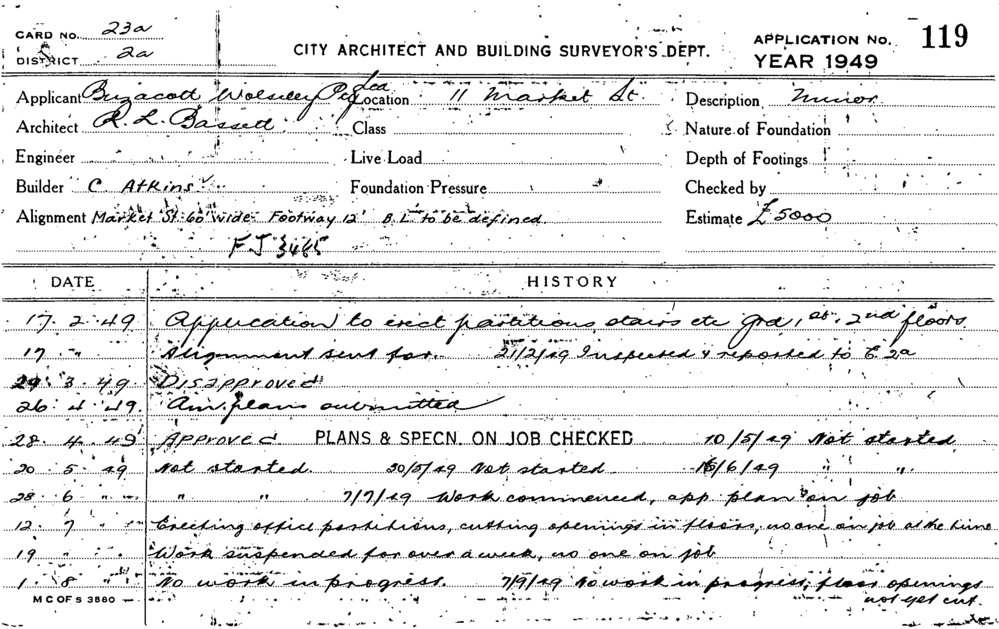 CARD NO. 23a
DISTRICT 2a
CITY ARCHITECT AND BUILDING SURVEYOR'S DEPT.
APPLICATION NO. 119
YEAR 1949
Applicant Buzacott Wolseley Pty Ltd Location 11 Market St. Description Minor
Architect R. L. Bassett Class Nature of Foundation
Engineer Live Load Depth of Footings
Builder C. Atkins Foundation Pressure Checked by
Alignment Market St 60' wide Footway 12' B.L. to be defined Estimate £5000
FJ 3465
DATE HISTORY
17. 2. 49 Application to erect partitions, stairs etc grd, 1st, 2nd floors
17 " Alignment sent for. 21/2/49 Inspected & reported to E. 2a
29 3. 49 Disapproved
26. 4. 49. Am. plans submitted
28. 4. 49 Approved PLANS & SPECN. ON JOB CHECKED 10/5/49 Not started
20 5. 49 Not started. 30/5/49 Not started 15/6/49 " "
28. 6 " " " 7/7/49 Work commenced, app. plan on job
12. 7 " Erecting office partitions, cutting openings in floors, no one on job at the time
19 " " Work suspended for over a week, no one on job
1. 8 " No work in progress. 7/9/49 No work in progress, floor openings
M C OF S 3560 not yet cut.